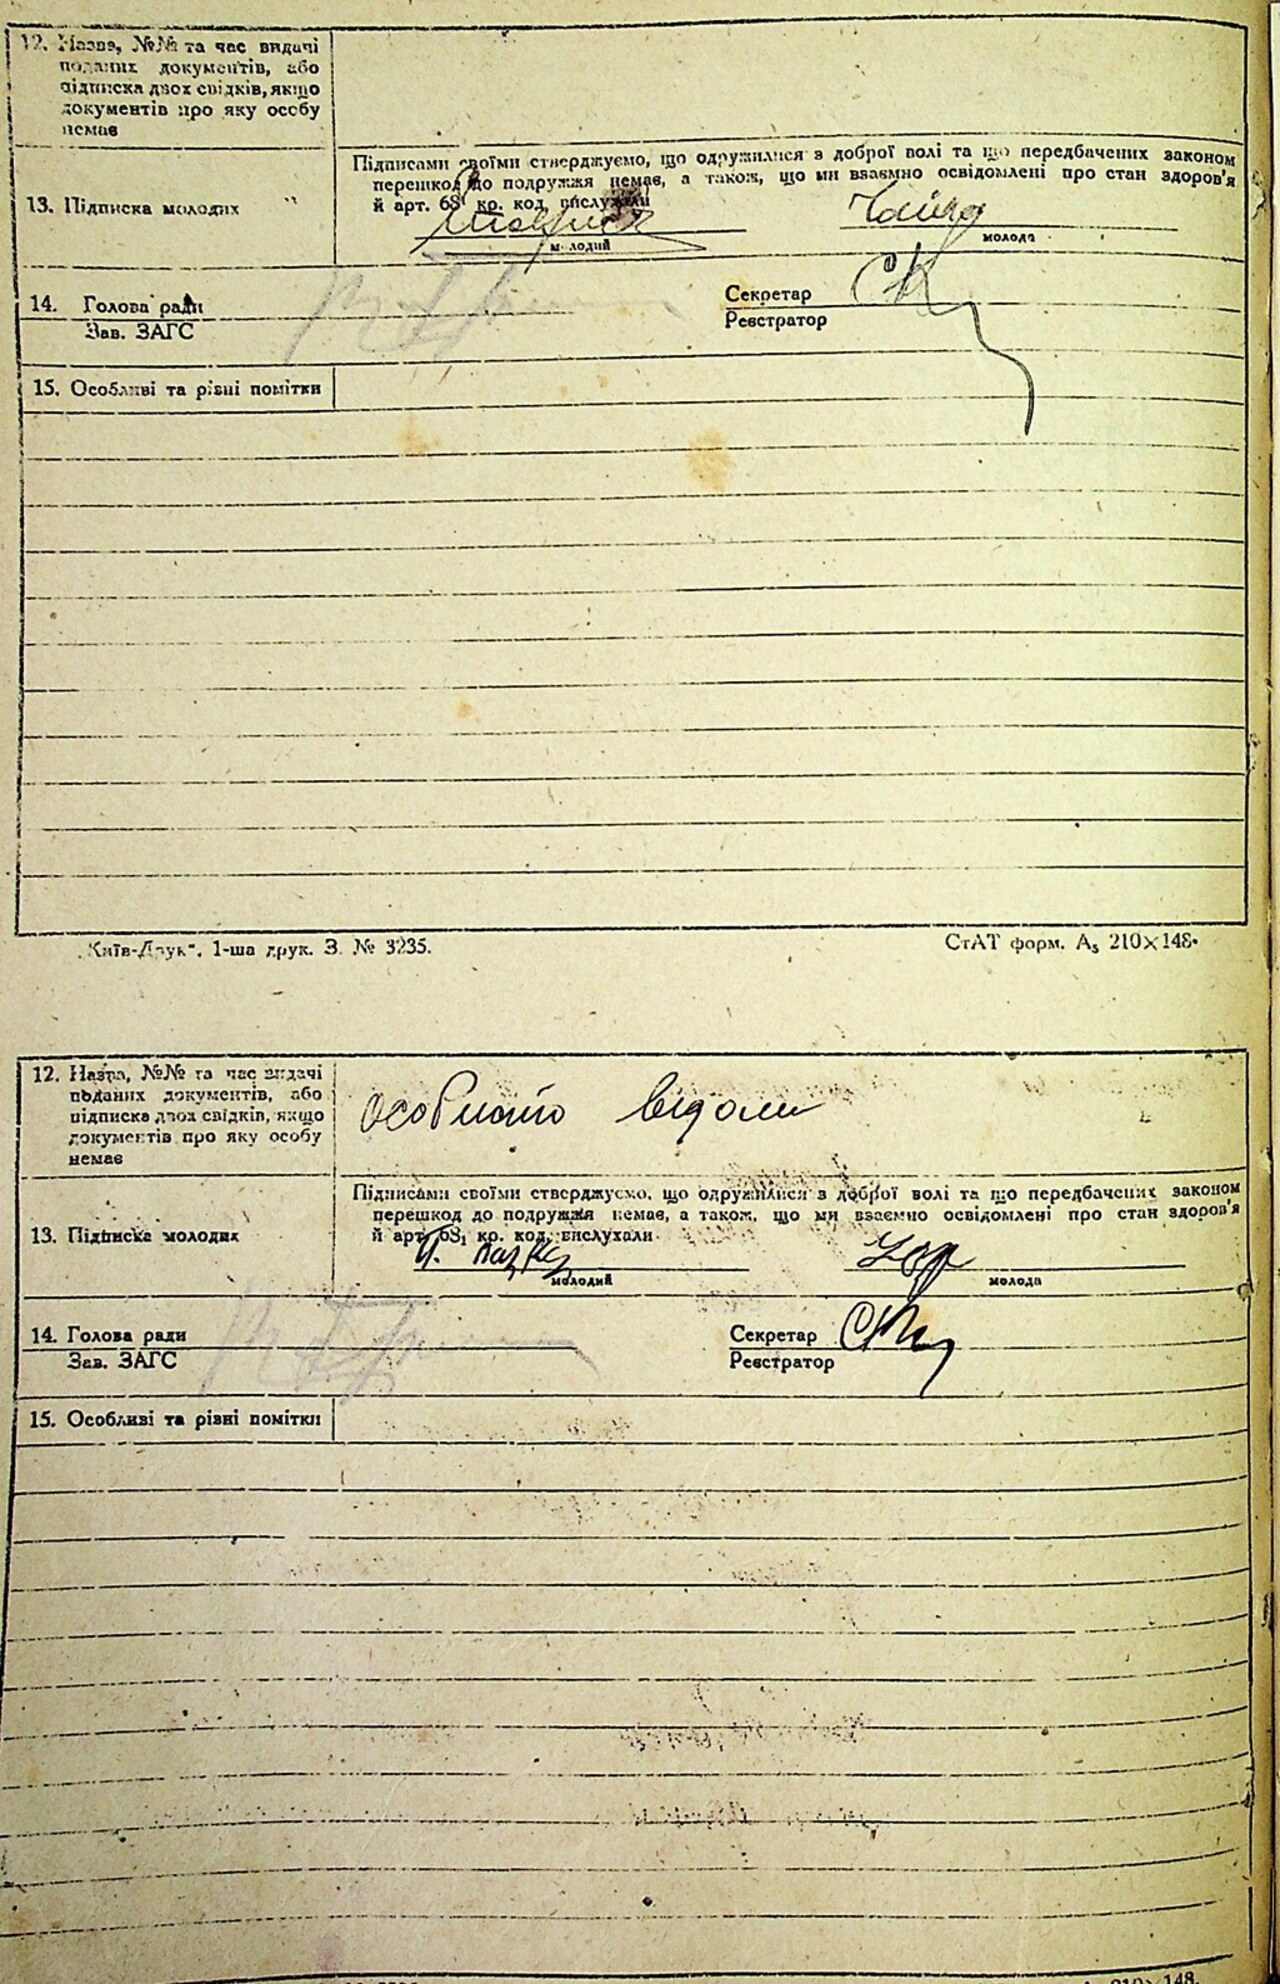 12. Назва, №№ та час видачі
поданих документів, або
підписка двох свідків, якщо
документів про яку особу
немає
Підписами своїми стверджуємо, що одружилися з доброї волі та що передбачених законом
перешкод до подружжя немає, а також, що ми взаємно освідомлені про стан здоров'я
13. Підписка молодих
й арт. 68¹ кр. код. вислухали
молодий
молода
14. Голова ради
Зав. ЗАГС
Секретар
Реєстратор
15. Особливі та різні помітки
„Київ-Друк". 1-ша друк. З. № 3235.
СтАТ форм. А₅ 210×148.
12. Назва, №№ та час видачі
поданих документів, або
підписка двох свідків, якщо
документів про яку особу
немає
особисто відомі
Підписами своїми стверджуємо, що одружилися з доброї волі та що передбачених законом
перешкод до подружжя немає, а також, що ми взаємно освідомлені про стан здоров'я
13. Підписка молодих
й арт. 68₁ кр. код. вислухали
молодий
молода
14. Голова ради
Зав. ЗАГС
Секретар
Реєстратор
15. Особливі та різні помітки
210×148.